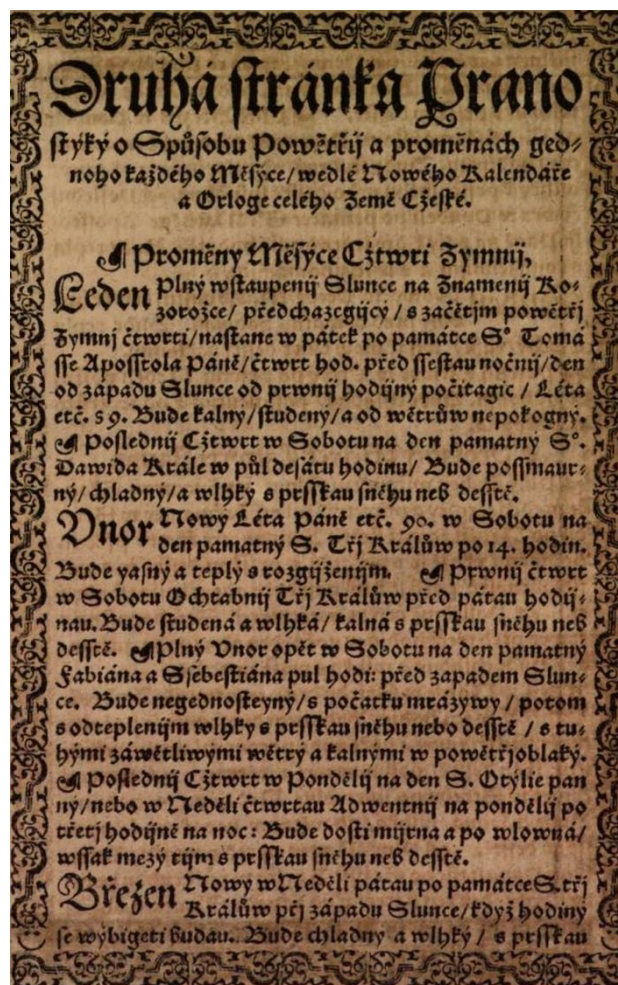 Druhá stránka Prano
styky o Spůsobu Powětřij a proměnách ged-
noho každého Měsýce/ wedlé Nowého Kalendáře
a Orloge celého Země Cžeské.
¶ Proměny Měsýce Cžtwrti Zymnij,
Leden Plný wstaupenij Slunce na Znamenij Ko-
zorožce/ předchazegijcý / s začětjm powětřj
Zymnj čtwrti/ nastane w pátek po památce S° Tomá
sse Aposstola Páně/ čtwrt hod. před ssestau nočnij/ den
od západu Slunce od prwnij hodijný počitagic / Léta
etč. 89. Bude kalný/ studený/ a od wětrůw nepokogný.
¶ Poslednij Cžtwrt w Sobotu na den pamatný S°.
Dawida Krále w půl desátu hodinu/ Bude possmaur-
ný/ chladný/ a wlhký s prsskau sněhu neb desstě.
Vnor Nowý Léta Páně etč. 90. w Sobotu na
den pamatný S. Třj Králůw po 14. hodin.
Bude yasný a teplý s rozgijženijm. ¶ Prwnij čtwrt
w Sobotu Ochtabnij Třj Králůw před pátau hodij-
nau. Bude studená a wlhká/ kalná s prsskau sněhu neb
desstě. ¶ Plný Vnor opět w Sobotu na den pamatný
Fabiána a Ssebestiána pul hodi: před zapadem Slun-
ce. Bude negednosteyný/ s počatku mrázywý / potom
s odteplenijm wlhký s prsskau sněhu nebo desstě / s tu-
hými záwětliwými wětrý a kalnými w powětřj oblaký.
¶ Poslednij Cžtwrt w Pondělij na den S. Otýlie pan
ný/ nebo w Neděli čtwrtau Adwentnij na pondělij po
třetj hodijně na noc: Bude dosti mijrna a po wlowná/
wssak mezý tijm s prsskau sněhu neb desstě.
Březen Nowý w Neděli pátau po památce S. třj
Králůw přj západu Slunce/ když hodiny
se wýbigeti budau. Bude chladný a wlhký / s prsskau